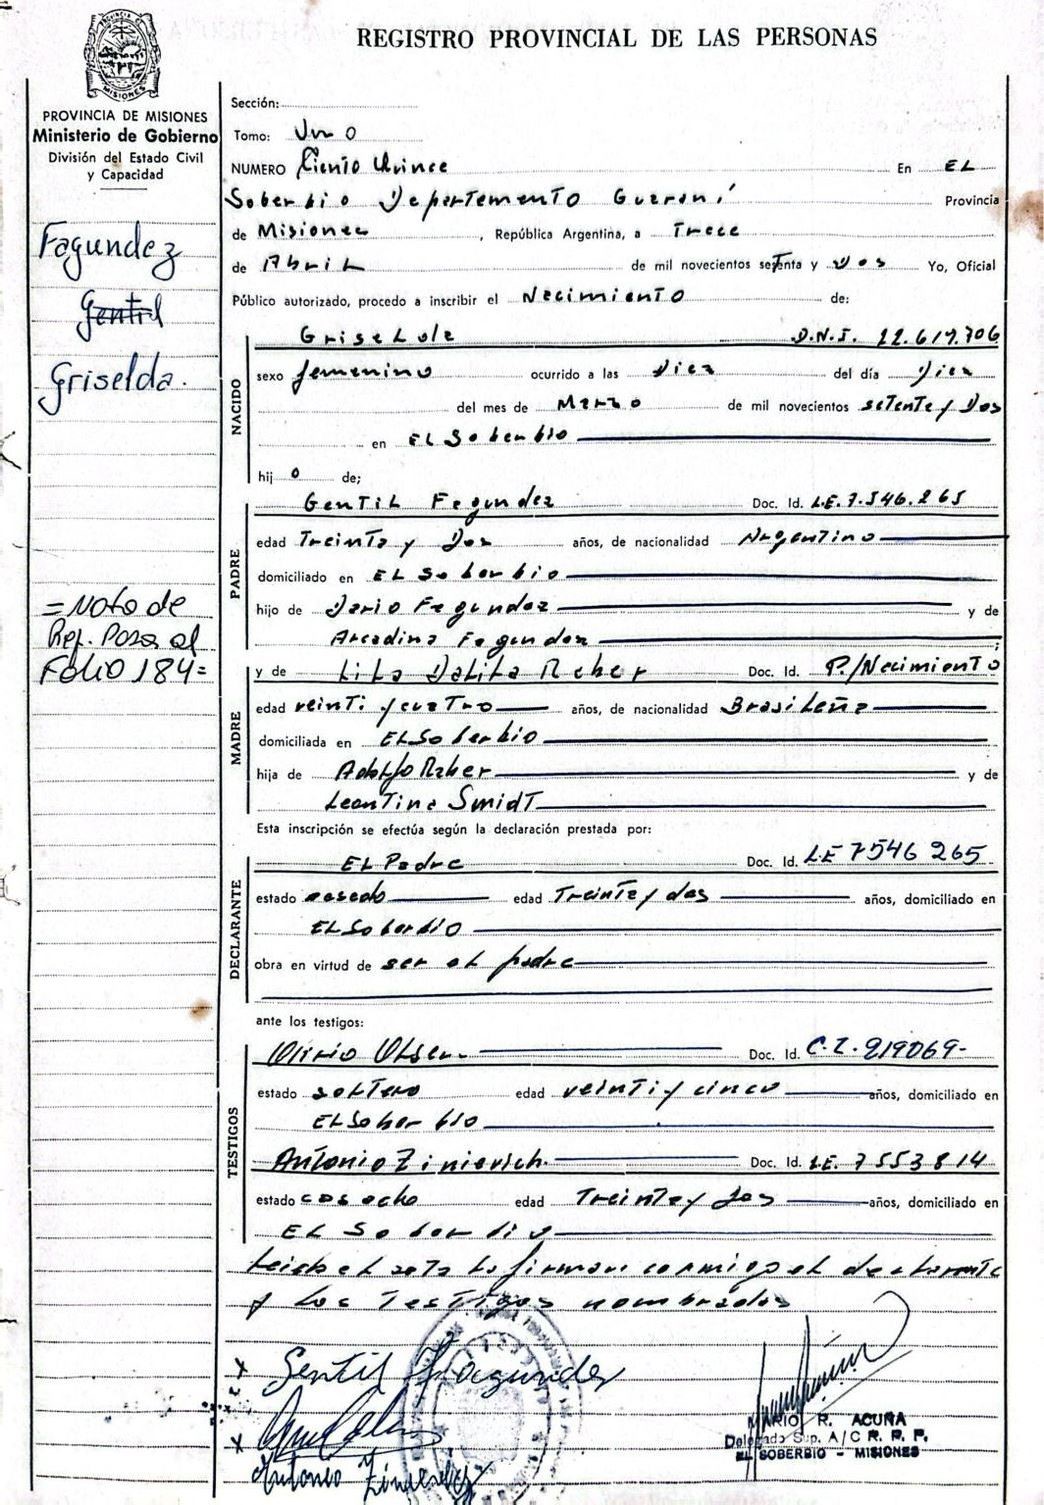 REGISTRO PROVINCIAL DE LAS PERSONAS
MISIONES
PROVINCIA DE MISIONES
Ministerio de Gobierno
División del Estado Civil
y Capacidad
Fagundez
Gentil
Griselda.
= Nota de
Ref. Pasa al
Folio 184=
Sección:
Tomo: Uno
NUMERO Ciento Quince En EL
Soberbio Departamento Guaraní Provincia
de Misiones, República Argentina, a Trece
de Abril de mil novecientos setenta y Dos Yo, Oficial
Público autorizado, procedo a inscribir el Nacimiento de:
NACIDO
Griselda D.N.I. 22.617.706
sexo femenino ocurrido a las Diez del día Diez
del mes de Marzo de mil novecientos setenta y Dos
en EL Soberbio
hij o de;
PADRE
Gentil Fagundez Doc. Id. L.E. 7.546.265
edad Treinta y Dos años, de nacionalidad Argentino
domiciliado en EL Soberbio
hijo de Dario Fagundez y de
Arcadina Fagundez ;
MADRE
y de Lila Dalila Raber Doc. Id. P./Nacimiento
edad veinti y cuatro años, de nacionalidad Brasileña
domiciliada en EL Soberbio
hija de Adolfo Raber y de
Leontina Smidt
Esta inscripción se efectúa según la declaración prestada por:
DECLARANTE
EL Padre Doc. Id. L.E 7546 265
estado casado edad Treinta y dos años, domiciliado en
EL Soberbio
obra en virtud de ser el padre
ante los testigos:
TESTIGOS
Olsen Doc. Id. C.I. 219069-
estado soltero edad veinti y cinco años, domiciliado en
EL Soberbio
Antonio Zinievich. Doc. Id. L.E. 7553814
estado casado edad Treinta y dos años, domiciliado en
EL Soberbio
Leida el acta la firman conmigo el declarante
y los Testigos nombrados
x Gentil Fagundez
x
Antonio
MARIO R. ACUÑA
Delegado Sup. A/C R. P. P.
EL SOBERBIO - MISIONES